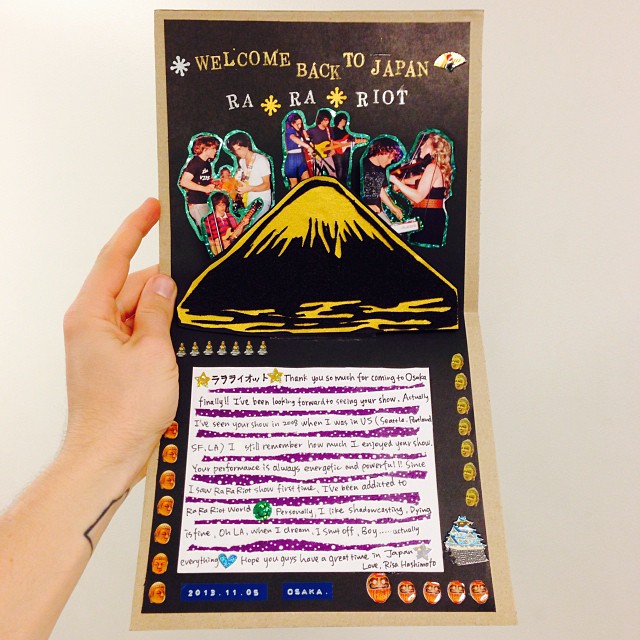 WELCOME BACK TO JAPAN
RA RA RIOT
ラララライオット Thank you so much for coming to Osaka
finally!! I've been looking forward to seeing your show. Actually
I've seen your show in 2008 when I was in US (Seattle. Portland
SF. LA) I still remember how much I enjoyed your show.
Your performance is always energetic and powerful!! Since
I saw Ra Ra Riot show first time, I've been addicted to
Ra Ra Riot World Personally, I like shadowcasting, Dying
is fine, Oh LA, when I dream, I shut off, Boy..... actually
everything Hope you guys have a great time in Japan
Love, Risa Hashimoto
2013.11.05 OSAKA.